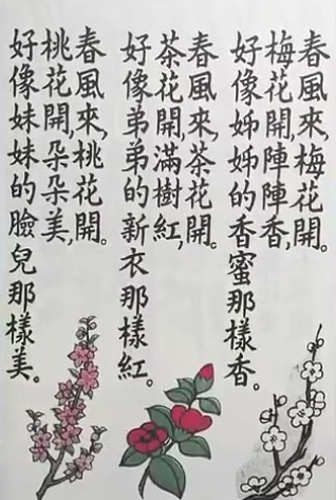 春風來,梅花開。
梅花開,陣陣香,
好像姊姊的香蜜那樣香。
春風來,茶花開。
茶花開,滿樹紅,
好像弟弟的新衣那樣紅。
春風來,桃花開。
桃花開,朵朵美,
好像妹妹的臉兒那樣美。